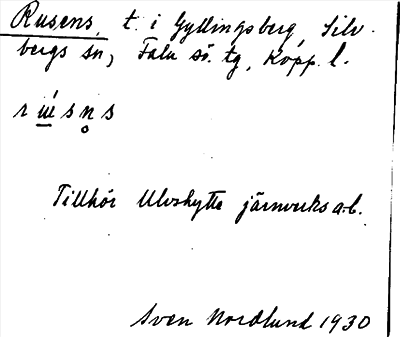 Rusens, t. i Gyllingsberg, Silv-
bergs sn, Falu sö. tg, Kopp. l.
r ú s n̥ s
Tillhör Ulvshytte järnverks a.-b.
Sven Nordlund 1930